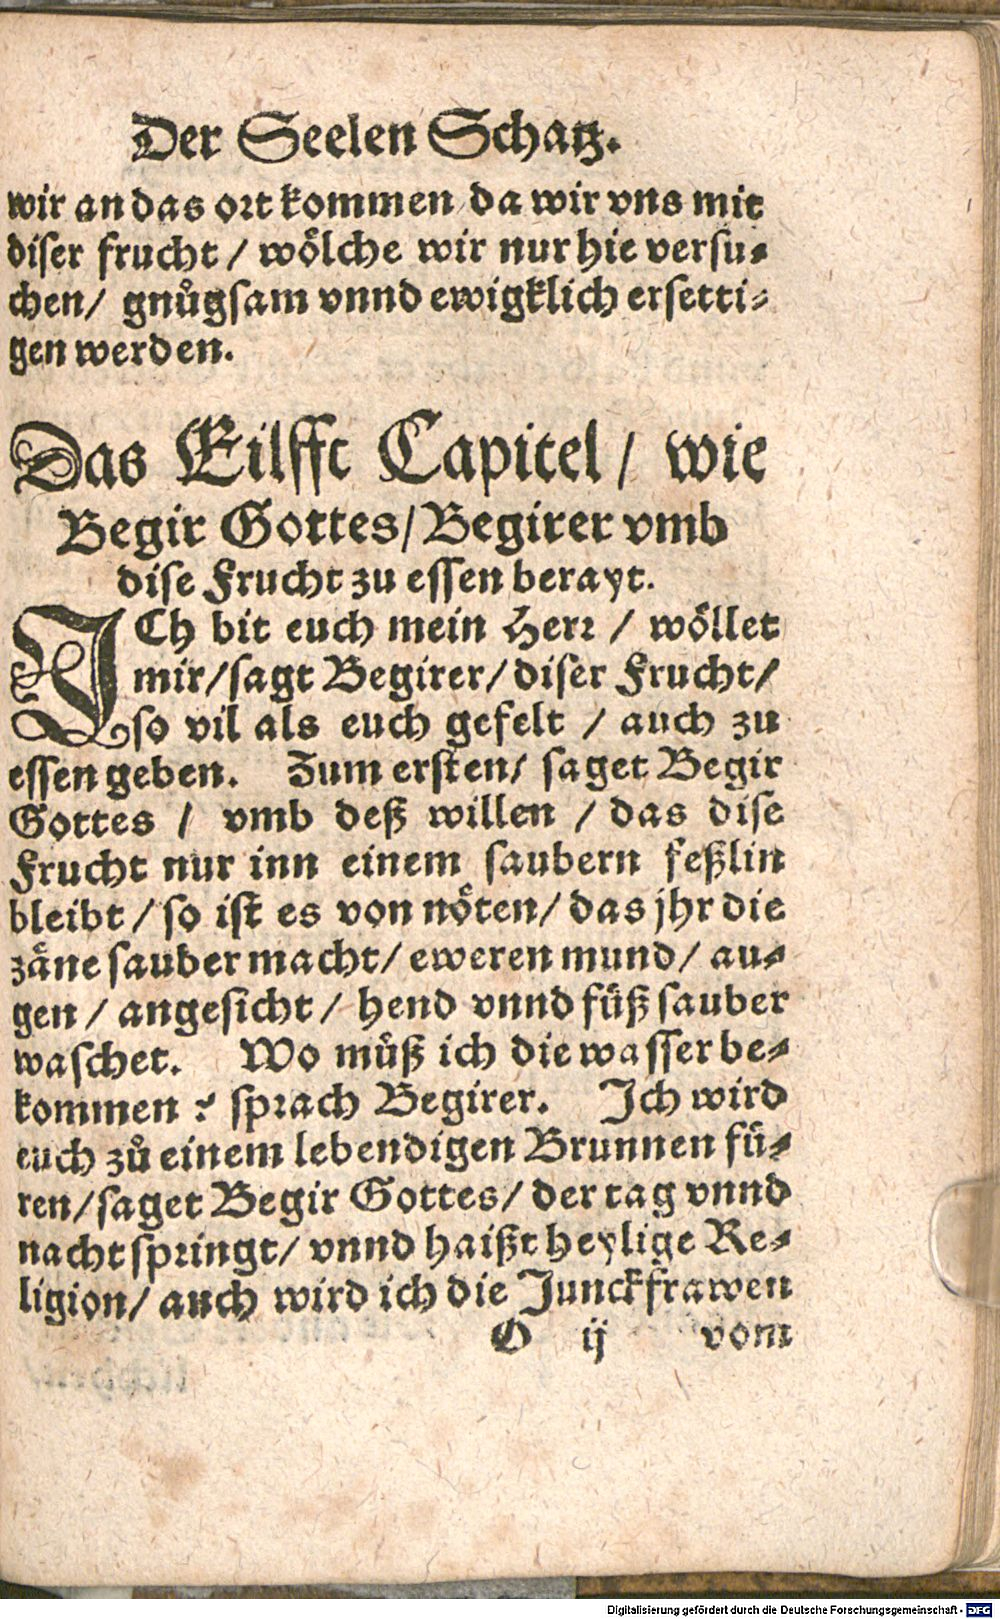 Der Seelen Schatz.
wir an das ort kommen / da wir vns mit
diser frucht / wölche wir nur hie versu-
chen / gnůgsam vnnd ewigklich ersetti-
gen werden.
Das Eilfft Capitel / wie
Begir Gottes / Begirer vmb
dise Frucht zu essen berayt.
ICh bit euch mein Herr / wöllet
mir / sagt Begirer / diser Frucht /
so vil als euch gefelt / auch zu
essen geben. Zum ersten / saget Begir
Gottes / vmb deß willen / das dise
Frucht nur inn einem saubern feßlin
bleibt / so ist es von nöten / das jhr die
zäne sauber macht / eweren mund / au-
gen / angesicht / hend vnnd füß sauber
waschet. Wo můß ich die wasser be-
kommen ? sprach Begirer. Ich wird
euch zů einem lebendigen Brunnen fü-
ren / saget Begir Gottes / der tag vnnd
nacht springt / vnnd haißt heylige Re-
ligion / auch wird ich die Junckfrawen
O ij vom
Digitalisierung gefördert durch die Deutsche Forschungsgemeinschaft - DFG